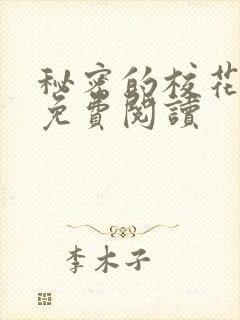 秘密的校花
免費閱讀
李木子